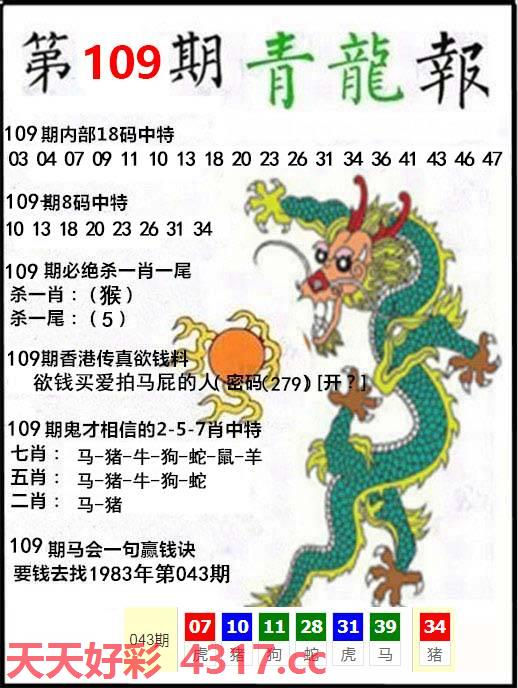 第109期青龍報
109期内部18码中特
03 04 07 09 11 10 13 18 20 23 26 31 34 36 41 43 46 47
109期8码中特
10 13 18 20 23 26 31 34
109期必绝杀一肖一尾
杀一肖：（猴）
杀一尾：（5）
109期香港传真欲钱料
欲钱买爱拍马屁的人（密码（279）[开？]
109期鬼才相信的2-5-7肖中特
七肖： 马-猪-牛-狗-蛇-鼠-羊
五肖： 马-猪-牛-狗-蛇
二肖： 马-猪
109期马会一句赢钱诀
要钱去找1983年第043期
043期 07 10 11 28 31 39 34
虎 猪 狗 蛇 虎 马 猪
天天好彩 4317.cc